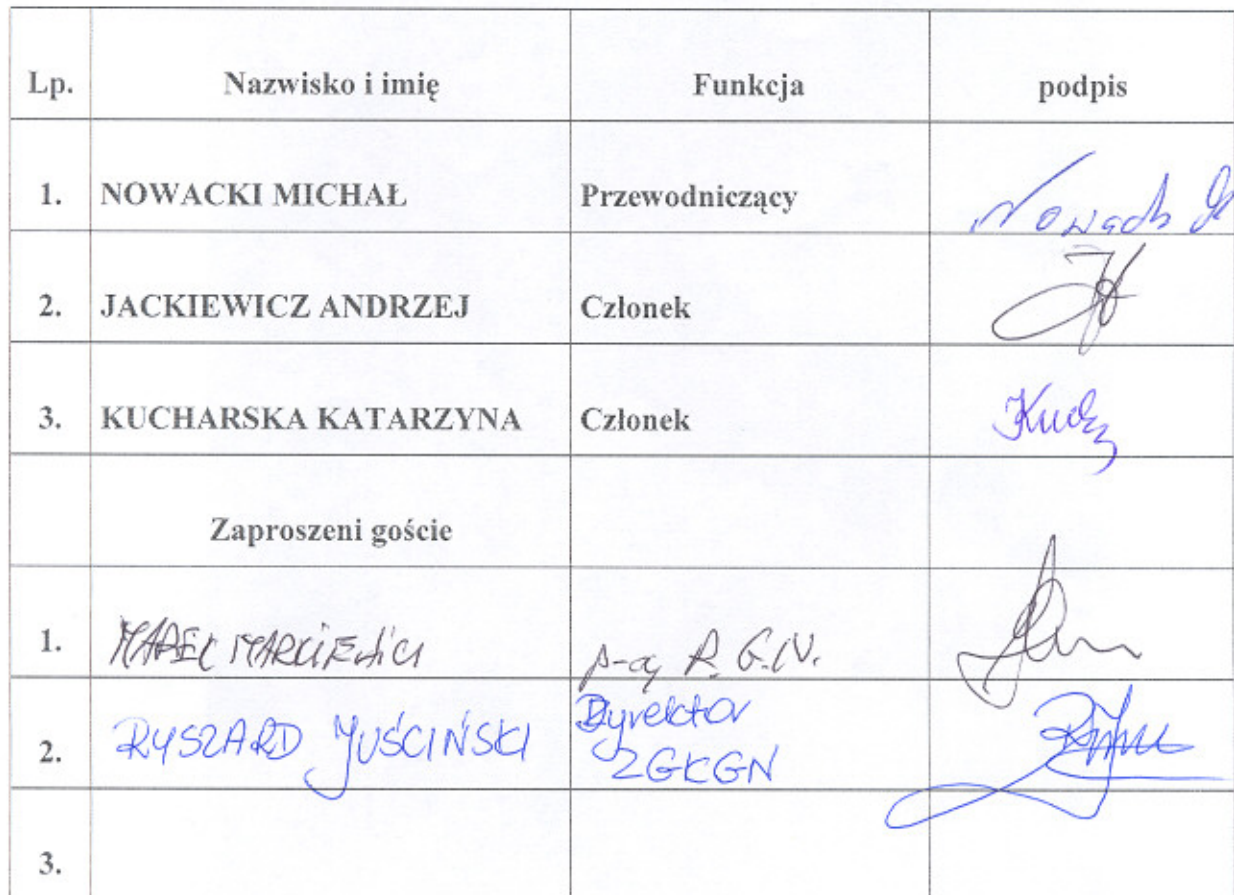 Lp. Nazwisko i imię Funkcja podpis
1. NOWACKI MICHAŁ Przewodniczący
2. JACKIEWICZ ANDRZEJ Członek
3. KUCHARSKA KATARZYNA Członek
Zaproszeni goście
1. MAREK MARKIEWICZ R. G. N.
2. RYSZARD JUŚCIŃSKI Dyrektor
ZGKGN
3.